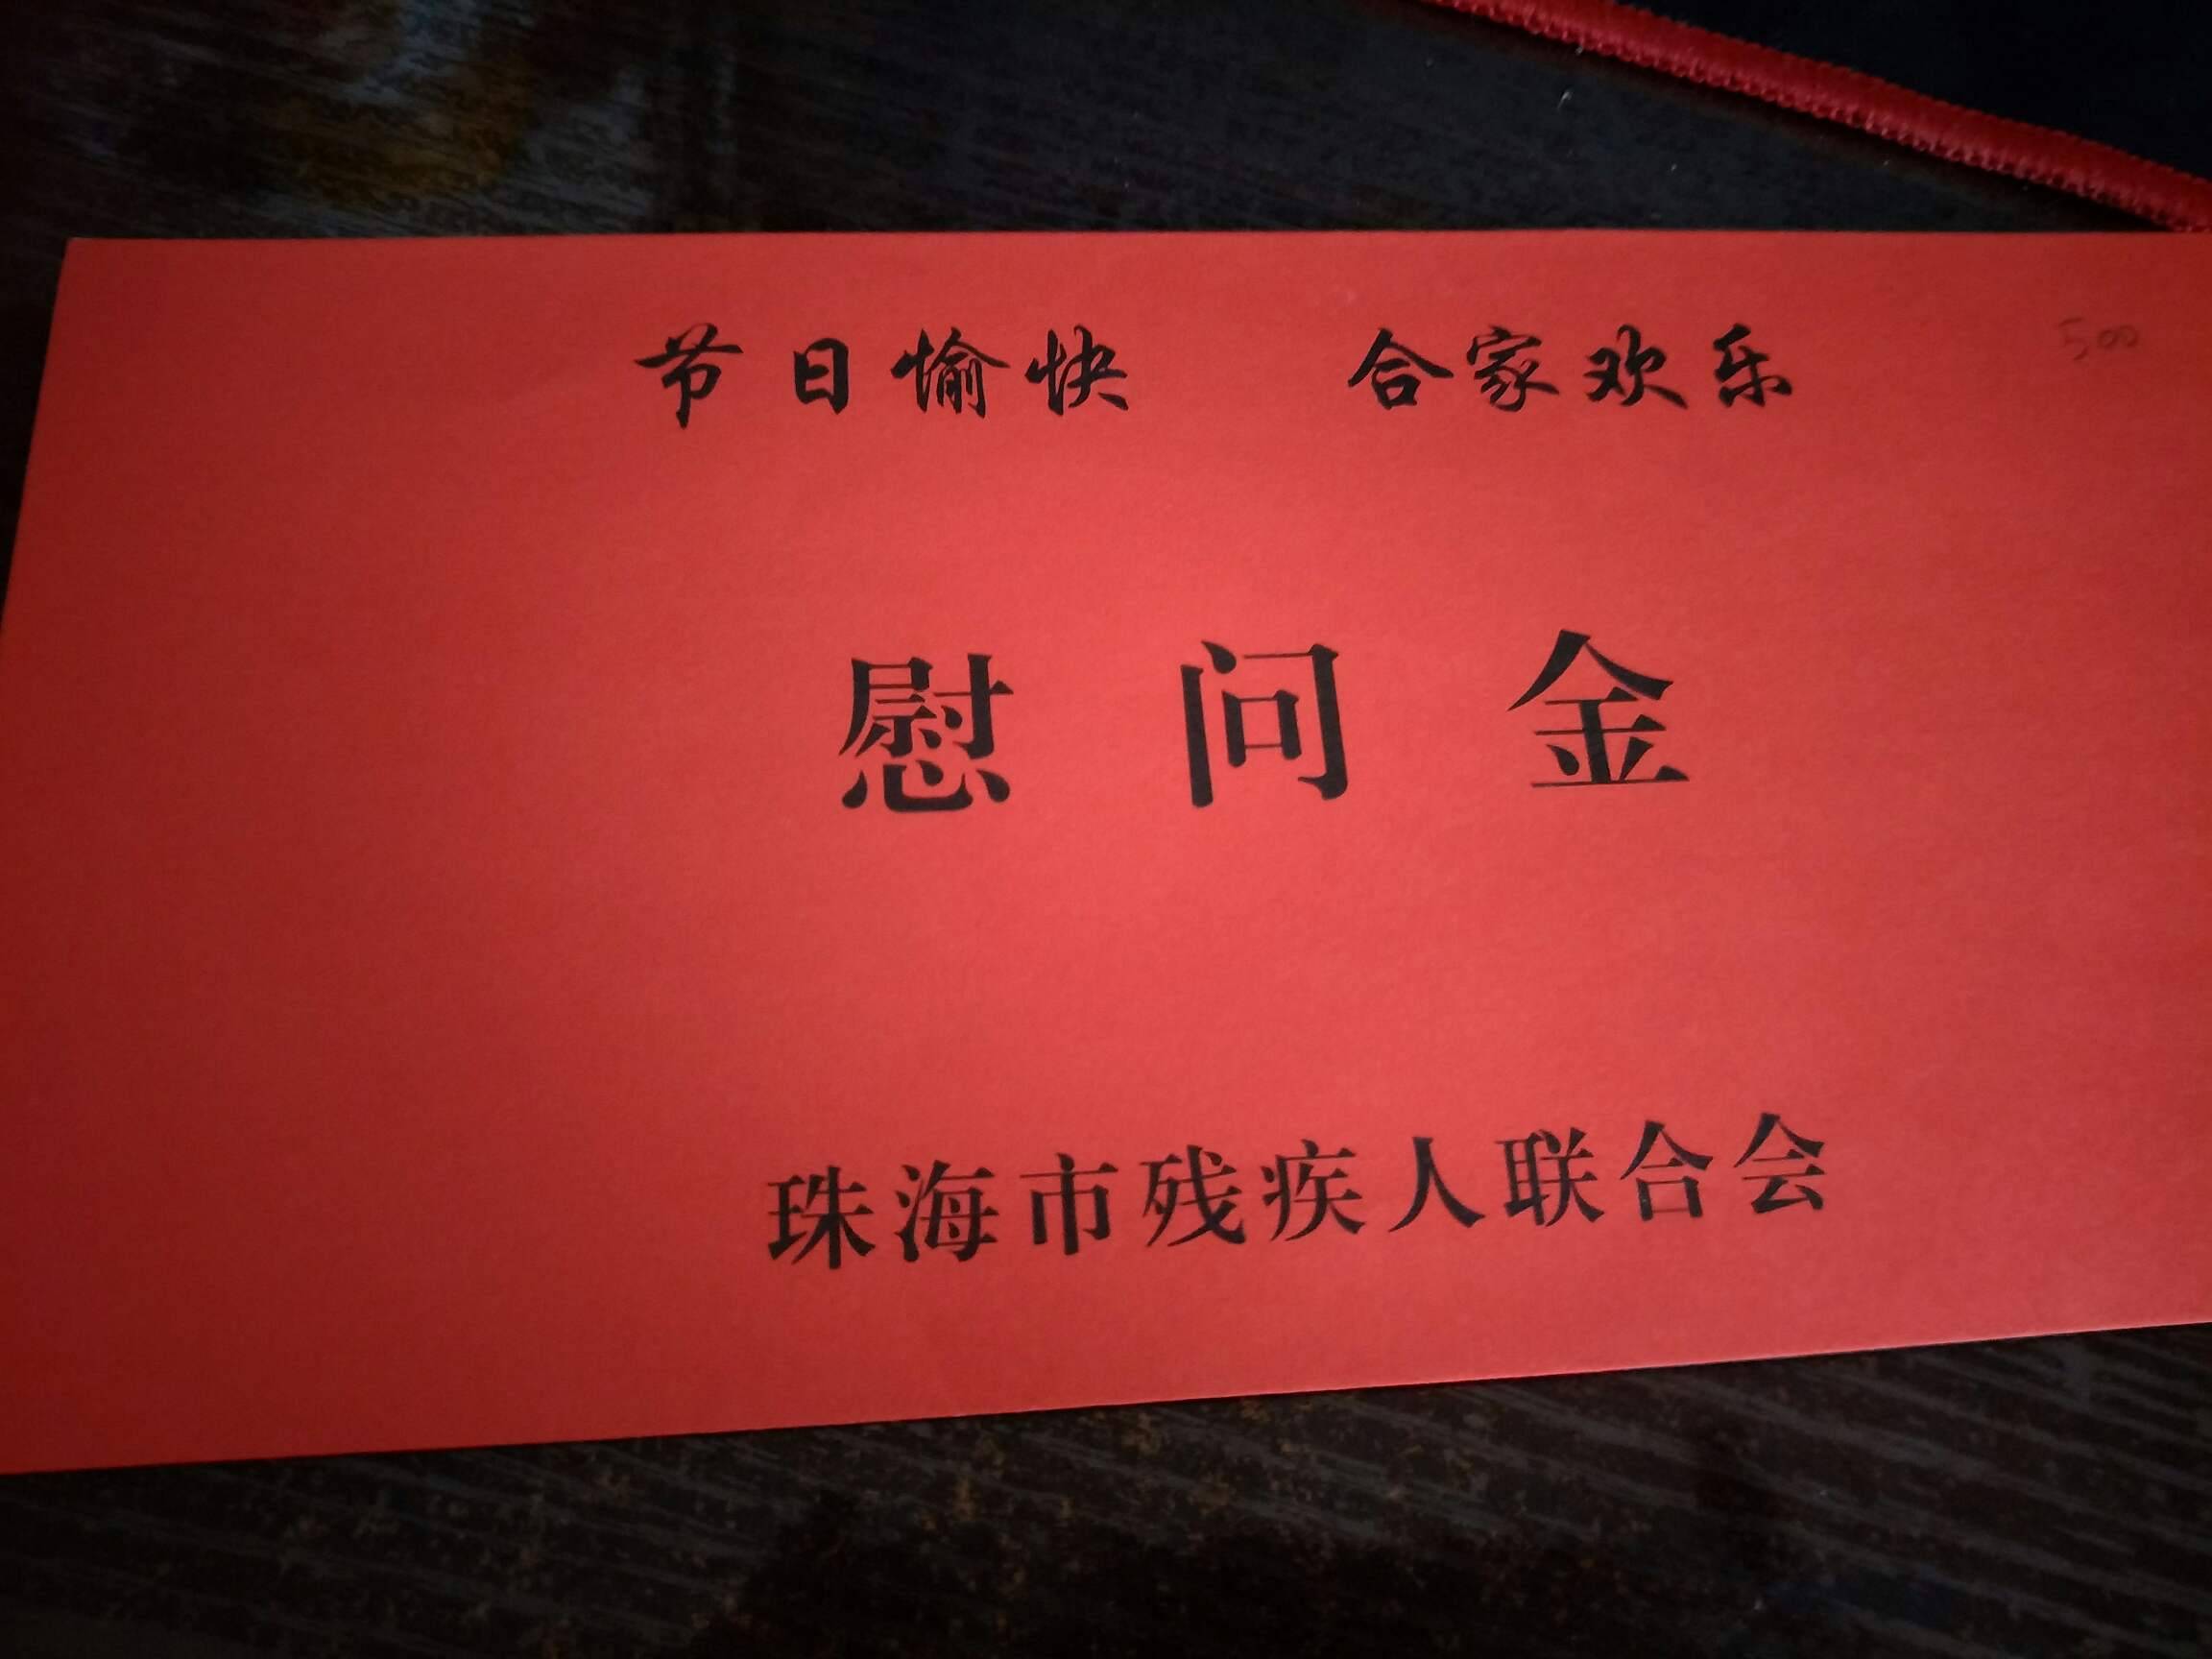 节日愉快 合家欢乐
500
慰问金
珠海市残疾人联合会